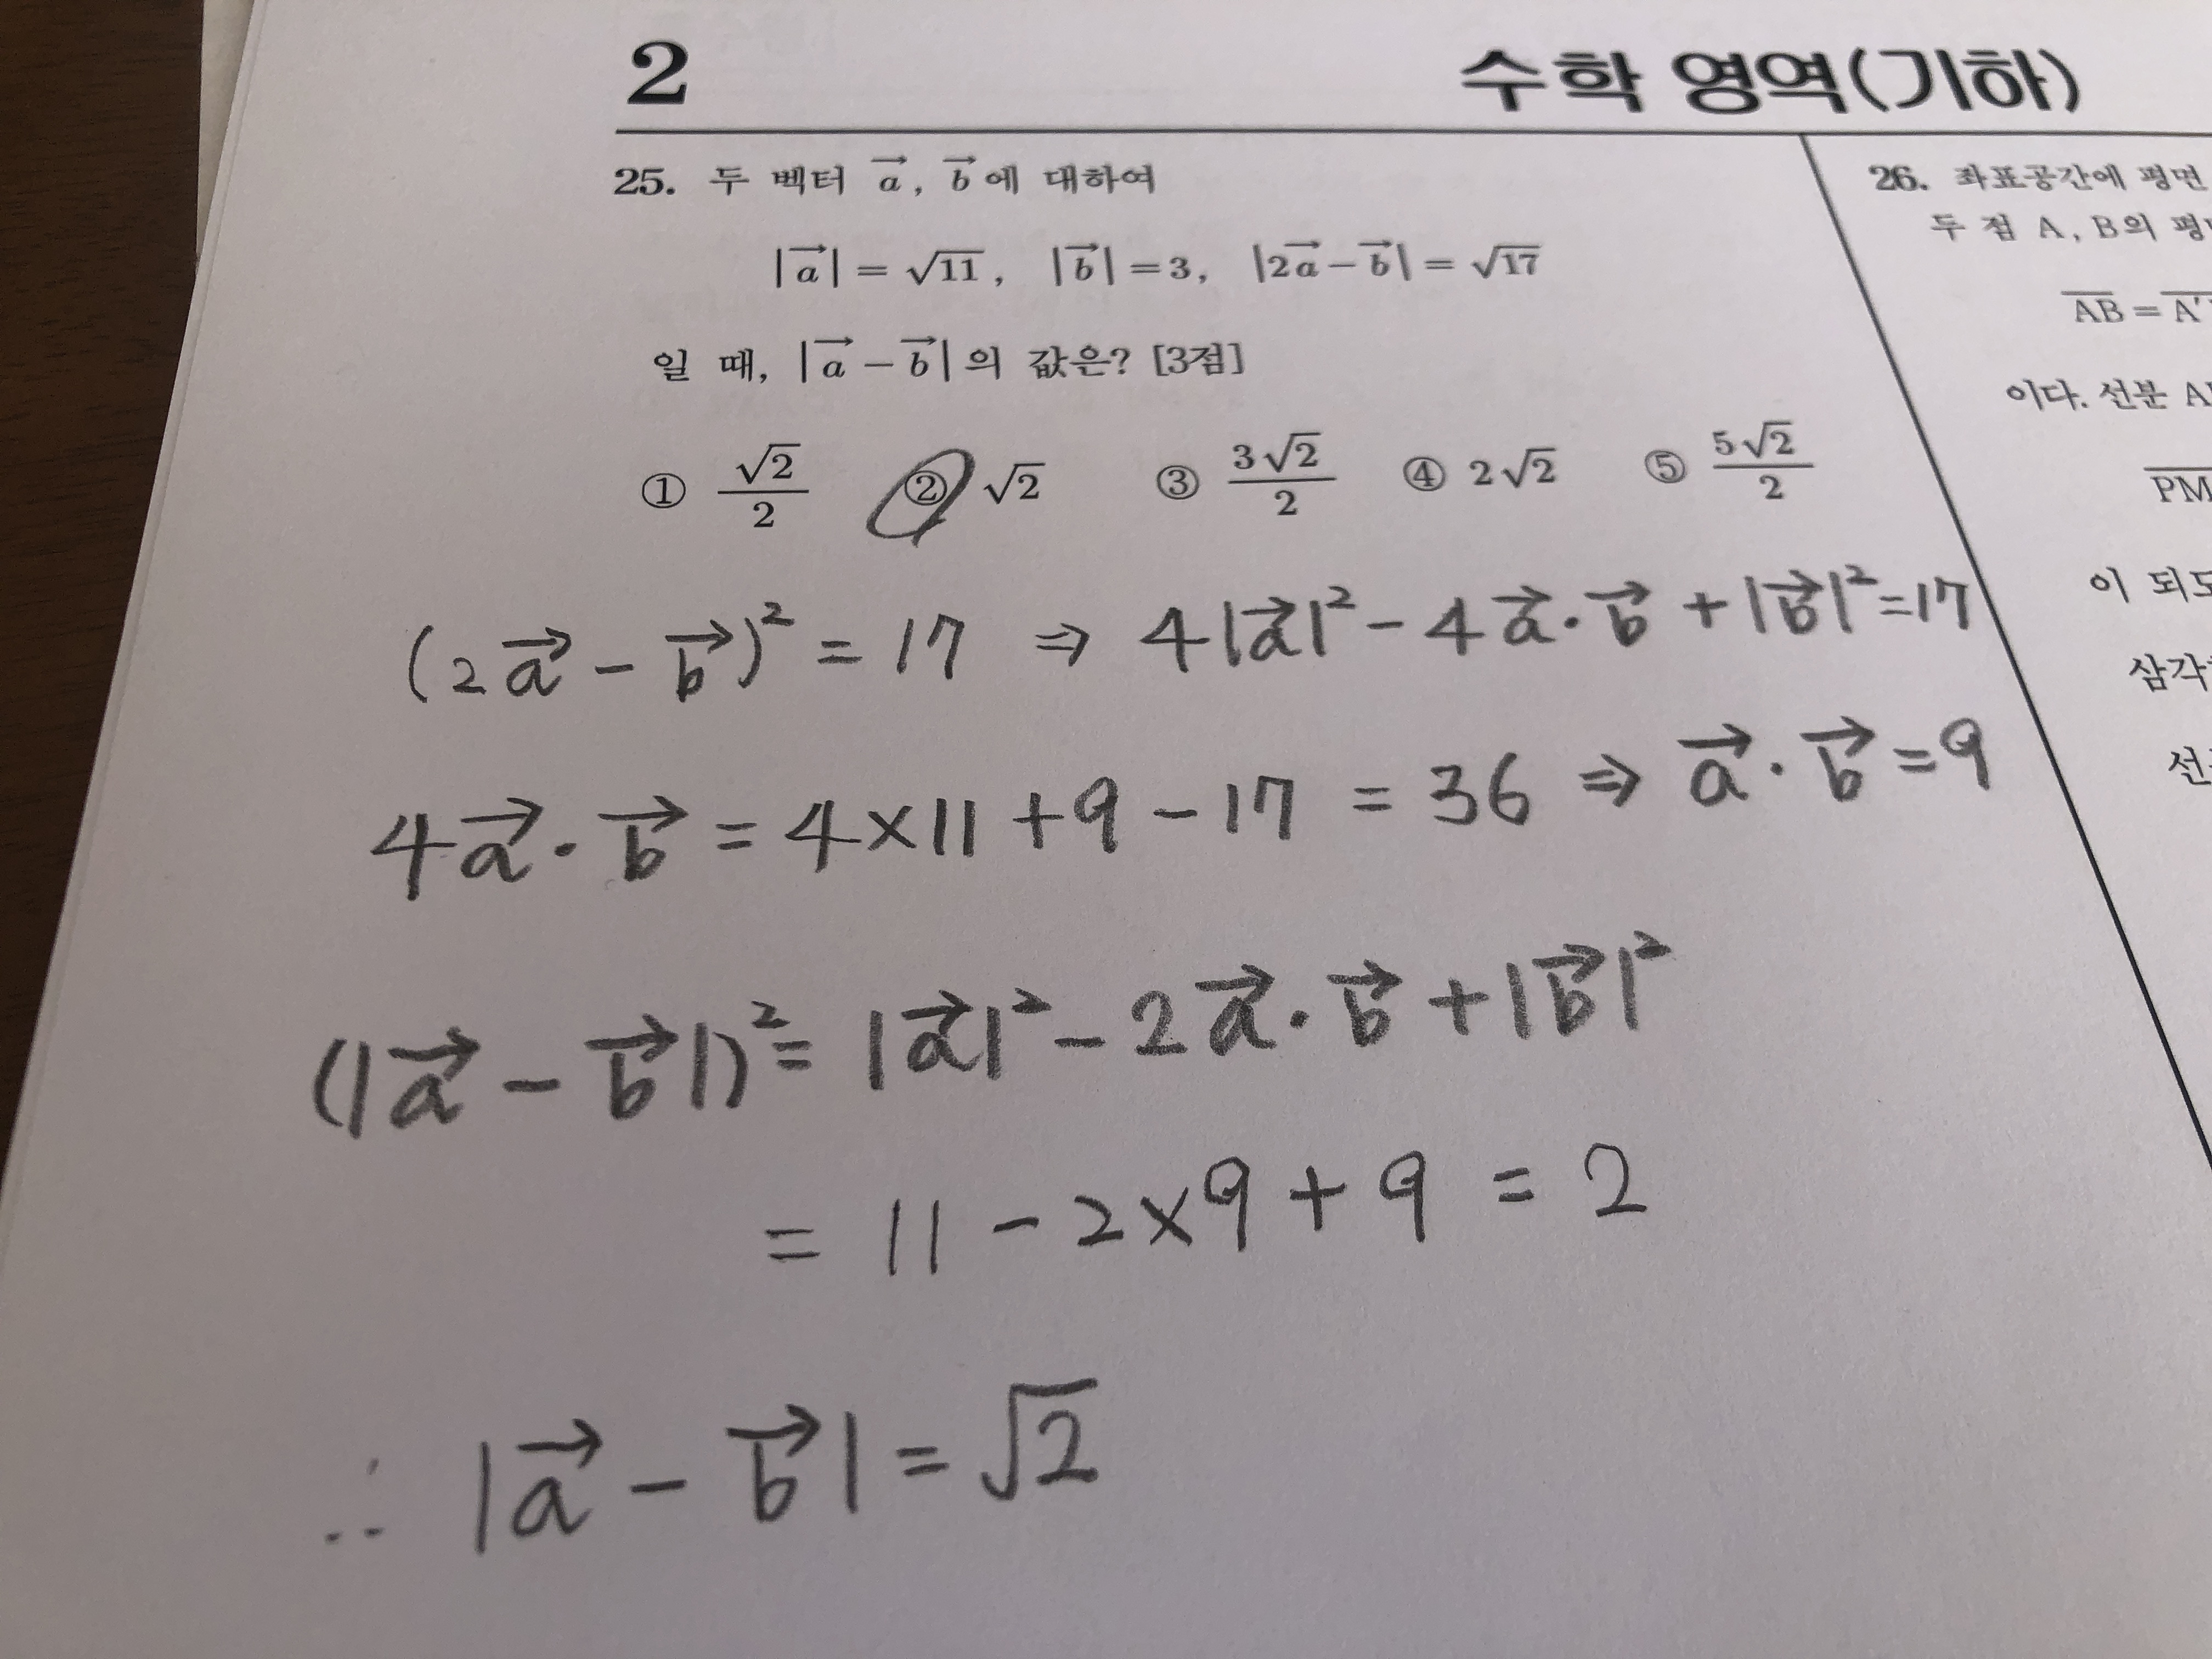 2
수학 영역(기하)
25. 두 벡터 a⃗, b⃗에 대하여
|a⃗| = √11, |b⃗| = 3, |2a⃗ − b⃗| = √17
일 때, |a⃗ − b⃗|의 값은? [3점]
① √2/2 ② √2 ③ 3√2/2 ④ 2√2 ⑤ 5√2/2
(2a⃗ − b⃗)² = 17 ⇒ 4|a⃗|² − 4a⃗·b⃗ + |b⃗|² = 17
4a⃗·b⃗ = 4×11 + 9 − 17 = 36 ⇒ a⃗·b⃗ = 9
(|a⃗ − b⃗|)² = |a⃗|² − 2a⃗·b⃗ + |b⃗|²
= 11 − 2×9 + 9 = 2
∴ |a⃗ − b⃗| = √2
26. 좌표공간에 평면
두 점 A, B의
AB = A′
이다. 선분
PM
이
삼각